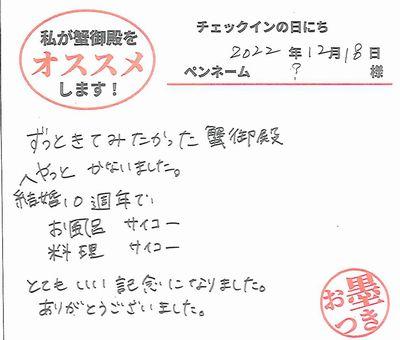 私が蟹御殿を
オススメ
します！
チェックインの日にち
2022年12月18日
ペンネーム ? 様
ずっときてみたかった 蟹御殿
へやっと かないました。
結婚10週年で
お風呂 サイコー
料理 サイコー
とてもいい記念になりました。
ありがとうございました。
お墨つき